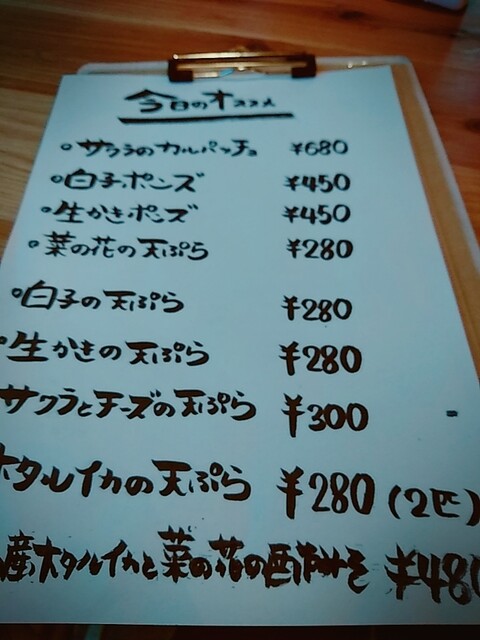 今日のオススメ
○サクラのカルパッチョ ¥680
○白子ポンズ ¥450
○生かきポンズ ¥450
○菜の花の天ぷら ¥280
○白子の天ぷら ¥280
○生かきの天ぷら ¥280
サクラとチーズの天ぷら ¥300
ホタルイカの天ぷら ¥280(2匹)
産ホタルイカと菜の花の酢みそ ¥480